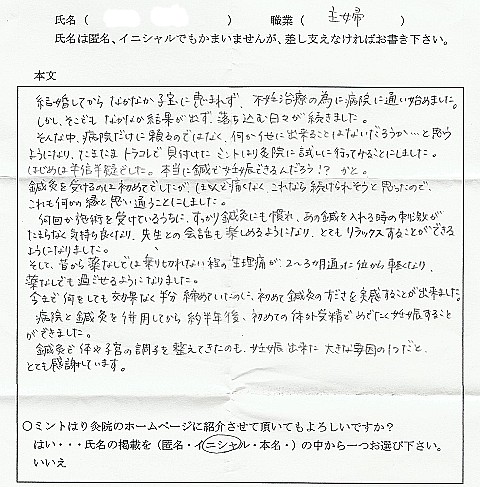 氏名（　　　　　）　職業（　主婦　）
氏名は匿名、イニシャルでもかまいませんが、差し支えなければお書き下さい。
本文
結婚してから なかなか子宝に恵まれず、不妊治療の為に病院に通い始めました。
しかし、そこでも なかなか結果が出ず、落ち込む日々が続きました。
そんな中、病院だけに頼るのではなく、何か他に出来ることはないだろうか…と思う
ようになり、たまたま トラコレで見付けた ミントはり灸院に試しに行ってみることにしました。
はじめは半信半疑でした。本当に鍼で妊娠できるんだろう!? かと。
鍼灸を受けるのは初めてでしたが、ほとんど痛くなく、これなら続けられそうと思ったので、
これも何かの縁と思い通うことにしました。
何回か施術を受けているうちに、すっかり鍼灸にも慣れ、あの鍼を入れる時の刺激が
たまらなく気持ち良くなり、先生との会話も楽しめるようになり、とてもリラックスすることができる
ようになりました。
そして、昔から薬なしでは乗り切れない程の生理痛が、2～3か月通った位から軽くなり、
薬なしでも過ごせるようになりました。
今まで何をしても効果なく半分諦めていたのに、初めて鍼灸のすごさを実感することが出来ました。
病院と鍼灸を併用してから約半年後、初めての体外受精でめでたく妊娠すること
ができました。
鍼灸で体や子宮の調子を整えてきたのも、妊娠出来た大きな要因の1つだと、
とても感謝しています。
〇ミントはり灸院のホームページに紹介させて頂いてもよろしいですか？
はい・・・氏名の掲載を（匿名・イニシャル・本名・）の中から一つお選び下さい。
いいえ